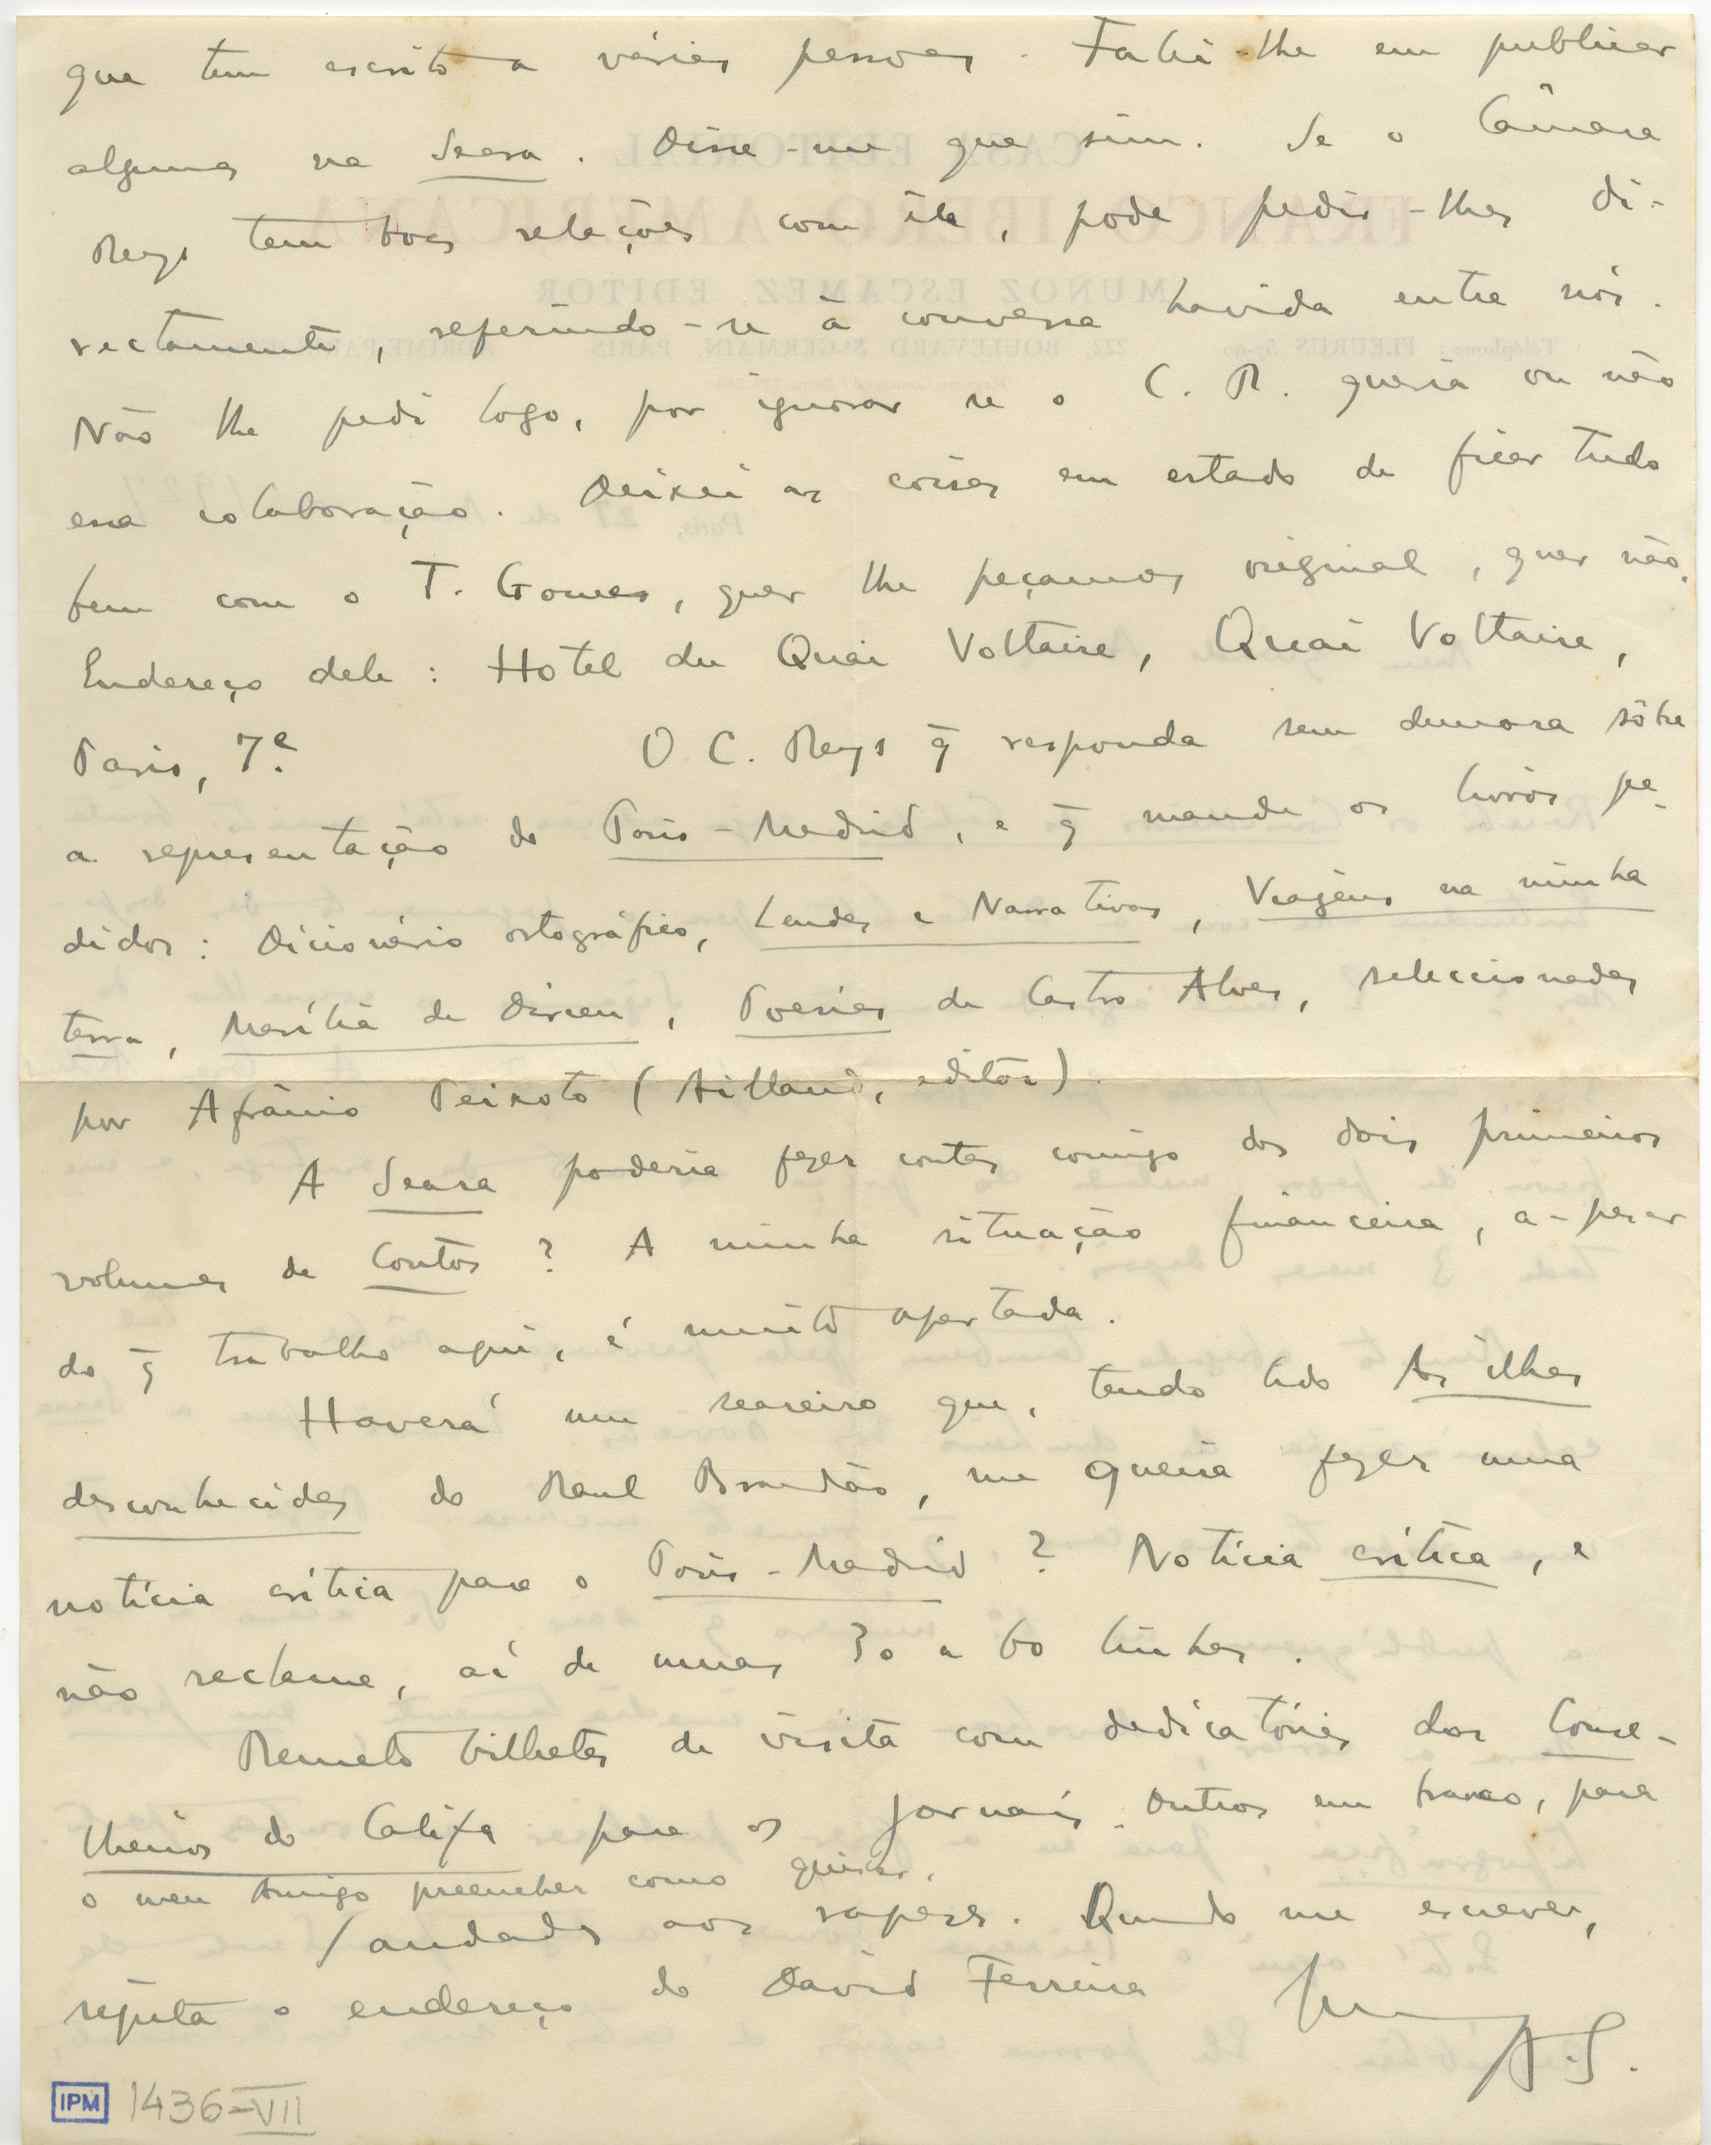 que tem escrito a várias pessoas. Falei-lhe em publicar
algumas na Seara. Disse-me que sim. Se o Câmara
Reys tem boas relações com êle, pode pedir-lhas di-
rectamente, referindo-se à conversa havida entre nós.
Não lhe pedi logo, por ignorar se o C. R. queria ou não
essa colaboração. Deixei as coisas em estado de ficar tudo
bem com o T. Gomes, quer lhe peçamos original, quer não.
Endereço dele: Hotel du Quai Voltaire, Quai Voltaire,
Paris, 7e. O C. Reys q̃ responda sem demora sôbre
a representação do Paris-Madrid, e q̃ mande os livros pe-
didos: Dicionário ortográfico, Lendas e Narrativas, Viagens na minha
terra, Marília de Dirceu, Poesias de Castro Alves, seleccionadas
por Afrânio Peixoto (Aillaud, editor).
A Seara poderia fazer contas comigo dos dois primeiros
volumes de Contos? A minha situação financeira, a-pesar
do q̃ trabalho aqui, é muito apertada.
Haverá um seareiro que, tendo lido As ilhas
desconhecidas do Raul Brandão, me queira fazer uma
notícia crítica para o Paris-Madrid? Notícia crítica, e
não reclame, aí de umas 30 a 60 linhas.
Remeto bilhetes de visita com dedicatórias dos Conse-
lheiros do Califa para os jornais. Outros em branco, para
o meu Amigo preencher como quiser.
Saudades aos rapazes. Quando me escrever,
repita o endereço do David Ferreira
A.S.
IPM 1436-VII